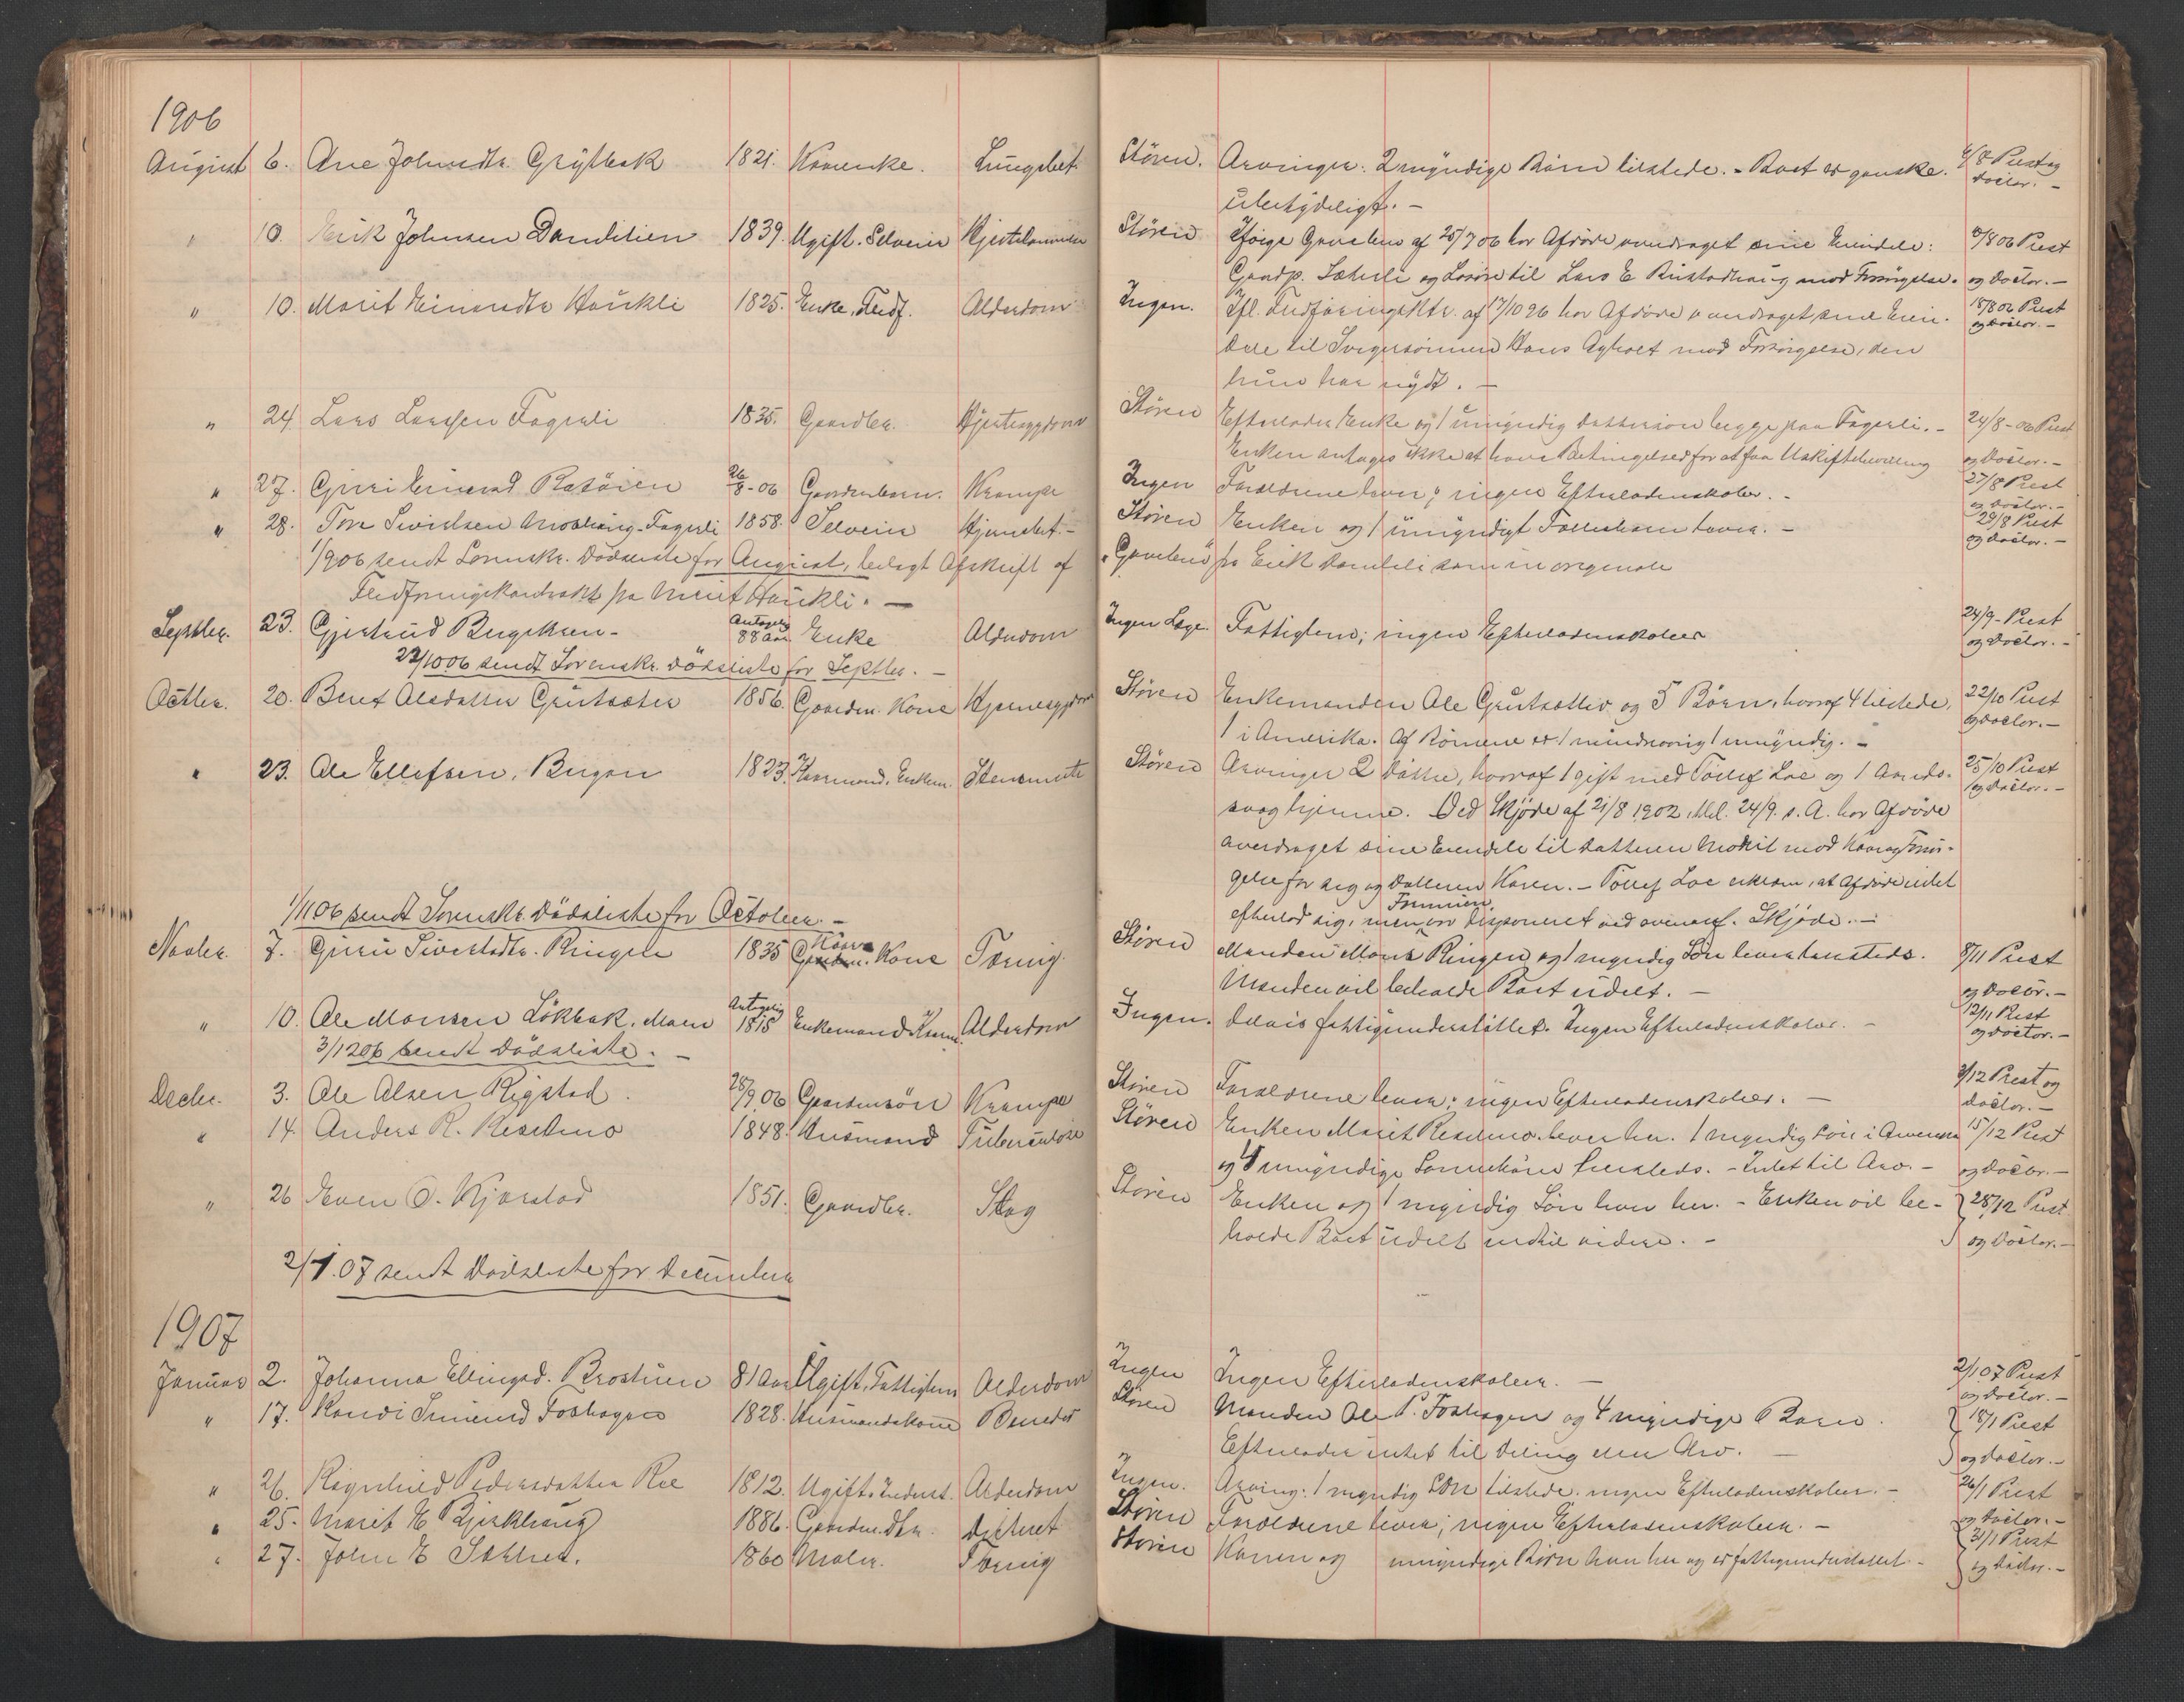 1906
August 6. Ane Johnsdtr. Grytbak 1821. Kaarenke. Lungebet. Støren. Arvinger: 2 myndige Børn tilstede. - Boet er ganske 6/8 Prest og
ubetydeligt. - Doctor. -
" 10. Erik Johnsen Dandilien 1839. Ugift. Selveier Støren Ifølge Gavebrev af 25/7 06 har Afdøde overdraget sine Eiendele: 8/06 Prest
Gaardp. Sæterli og Løsøre til Lars E mod Forsørgelse. og Doctor. -
" 10. Marit Einarsdtr Haukli 1825. Enke, Fledf. Alderdom Ingen. Ifl. Fledføringsktr. af 17/10 96 har Afdøde overdraget sine Eien- 18/8 06 Prest
dele til Svigersønnen Hans mod Forsørgelse, den og Doctor. -
hun har nydt. -
" 24. Lars Larssen Fagerli 1835. Gaardbr. Hjertesygdom Støren Efterlader Enke og 1 umyndig Dattersøn begge paa Fagerli. - 24/8 - 06 Prest
Enken antages ikke at have Betingelser for at faa Uskiftebevilling og Doctor. -
" 27. Guri Einarsd Ratøien 26/8-06 Gaardmbarn. Krampe Ingen Forældrene lever; ingen Efterladenskaber. - 27/8 Prest
og Doctor. -
" 28. Tore Sivertsen Moshaug-Fagerli 1858. Selveier Støren Enken og 1 umyndigt Fællesbarn lever. - 29/8 Prest
og Doctor. -
1/9 06 sendt Sorenskr. Dødsliste for August, bilagt Afskrift af "Gavebrev" fra Erik Dandili som in originale
Fledføringskontrakt fra Marit Haukli. -
Septbr. 23. Gjertrud Bengtksen - Antagelig 88 Aar Enke Alderdom Ingen Læge. Fattiglem; ingen Efterladenskaber 24/9 - Prest
og Doctor. -
22/10 06 sendt Sorenskr. Dødsliste for Septbr. -
Octbr. 20. Beret Olsdatter Grutsæter 1856. Gaardm. Kone Hjernesygdom Støren Enkemanden Ole Grutsætter og 5 Børn, hvoraf 4 tilstede, 22/10 Prest
1 i Amerika. Af Børnene er 1 mindreaarig 1 umyndig. - og Doctor. -
" 23. Ole Ellefsen, Bugen 1823. Kaarmand, Enkem. Støren Arvinger 2 Døttre, hvoraf 1 gift med Tollef Loe og 1 Aands- 25/10 Prest
svag hjemme. Ved Skjøde af 21/8 1902, thl. 24/9. s. A. har Afdøde og Doctor. -
overdraget sine Eiendele til Datteren Mod Kaar og Forsør-
gelse for seg og Datteren Karen. - Tollef Loe erklærer, at Afdøde intet
efterlod sig, men Formuen var disponeret ved ovennf. Skjøde. -
1/11 06 sendt Sorenskr. Dødsliste for October. -
Novbr. 7. Guru Sivertsdtr. Ringen 1835 Kaarm. Kone Tæring Støren Manden Mons Ringen og 1 myndig Søn lever hersteds. 8/11 Prest
Manden vil beholde Boet udelt. - og Doctor. -
" 10. Ole Monsen Løkbak, Moen Antagelig 1818 Enkemand, Kaarm. Alderdom Ingen. Delvis fattigunderstøttet. Ingen Efterladenskaber. - 12/11 Prest
og Doctor. -
3/12 06 sendt Dødsliste. -
Decbr. 3. Ole Olsen Rigstad 28/9 06 Gaardmsøn Krampe Støren Forældrene lever; ingen Efterladenskaber. - 3/12 Prest og
Doctor. -
" 14. Anders R. Resedmo 1848. Husmand Tuberculose Støren Enken Marit Resedmo lever her. 1 myndig Søn i Amerika 15/12 Prest
og umyndige Sønnebørn hersteds. - Intet til Arv. - og Doctor. -
" 26 Even O. Kjørstad 1851. Gaardbr. Slag Støren Enken og 1 myndig Søn lever her. - Enken vil be- 28/12 Prest
holde Boet udelt indtil videre. - og Doctor. -
2/1.07 sendt Dødsliste for December
1907
Januar 2. Johanna Ellingsd. Brostuen 81 Aar Ugift, Fattiglem Alderdom Ingen Ingen Efterladenskaber. - 2/1 07 Prest
og Doctor. -
" 17. Randi Foshagen 1828. Husmandskone Støren Manden Ole P. Foshagen og 4 myndige Børn. 18/1 Prest
Efterlader intet til Deling eller Arv. - og Doctor. -
" 26. Ragnhild Pedersdatter Roe 1812. Ugift. Inderst. Alderdom Ingen. Arving: 1 myndig Søn tilstede. ingen Efterladenskaber. - 26/1 Prest
og Doctor. -
" 25. Marit E Bjerkhaug 1886. Gaardm. Dtr. Støren Forældrene lever; ingen Efterladenskaber. -
" 27. John E Sætret. 1860 Maler. Tæring Støren Konen og umyndige Børn lever her og er fattigunderstøttet. - 31/1 Prest
og Doctor. -